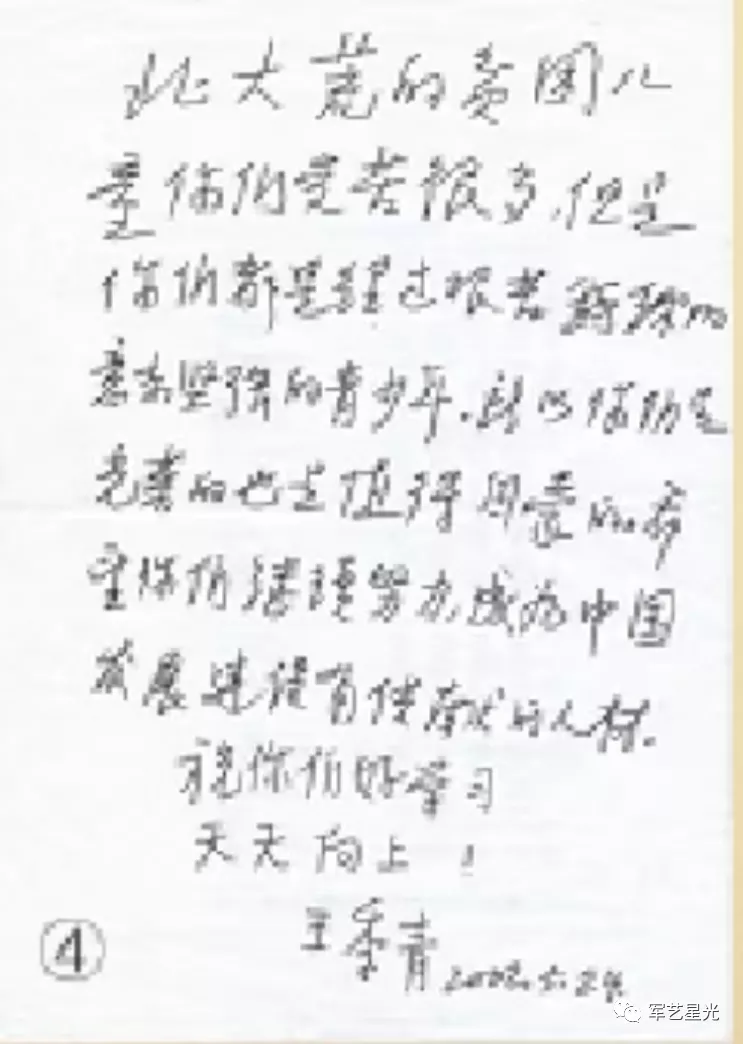 北大荒的贫困儿
童你们受苦很多，但是
你们都是经过艰苦锻炼的
意志坚强的青少年。所以你们是
光荣的也是值得同爱的。希
望你们继续努力，成为中国
发展建设有使命的人材。
祝你们好学习
天天向上！
王季青 2002.5.24.
④
军艺星光